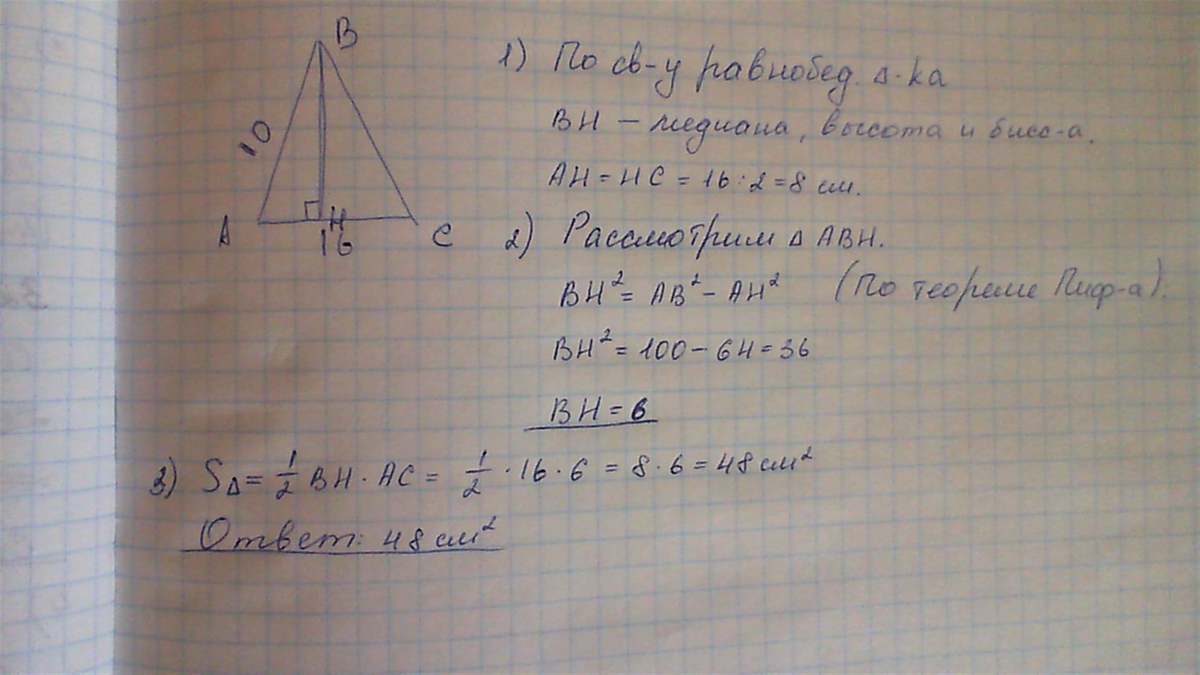 B
10
A
H
16
C
1) По св-у равнобед. Δ-ка
BH – медиана, высота и бисс-а.
AH = HC = 16 : 2 = 8 см.
2) Рассмотрим Δ ABH.
BH² = AB² – AH² (По теореме Пиф-а).
BH² = 100 – 64 = 36
BH = 6
3) S△ = 1/2 BH · AC = 1/2 · 16 · 6 = 8 · 6 = 48 см²
Ответ: 48 см²